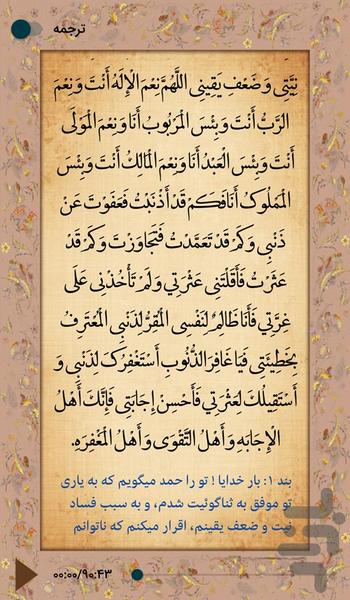 ترجمه
نِيَّتِي وَضَعْفِ يَقِينِي اللَّهُمَّ نِعْمَ الْإِلَهُ أَنْتَ وَنِعْمَ
الرَّبُّ أَنْتَ وَبِئْسَ الْمَرْبُوبُ أَنَا وَنِعْمَ الْمَوْلَى
أَنْتَ وَبِئْسَ الْعَبْدُ أَنَا وَنِعْمَ الْمَالِكُ أَنْتَ وَبِئْسَ
الْمَمْلُوكُ أَنَا فَكَمْ قَدْ أَذْنَبْتُ فَعَفَوْتَ عَنْ
ذَنْبِي وَكَمْ قَدْ تَعَمَّدْتُ فَتَجَاوَزْتَ وَكَمْ قَدْ
عَثَرْتُ فَأَقَلْتَنِي عَثْرَتِي وَلَمْ تَأْخُذْنِي عَلَى
غِرَّتِي فَأَنَا ظَالِمٌ لِنَفْسِي الْمُقِرُّ لِذَنْبِي الْمُعْتَرِفُ
بِخَطِيئَتِي فَيَا غَافِرَ الذُّنُوبِ أَسْتَغْفِرُكَ لِذَنْبِي وَ
أَسْتَقِيلُكَ لِعَثْرَتِي فَأَحْسِنْ إِجَابَتِي فَإِنَّكَ أَهْلُ
الْإِجَابَهِ وَأَهْلُ التَّقْوَى وَأَهْلُ الْمَغْفِرَهِ.
بند ۱: بار خدایا ! تو را حمد میگویم که به یاری
تو موفق به ثناگوئیت شدم، و به سبب فساد
نیت و ضعف یقینم، اقرار میکنم که ناتوانم
۰۰:۰۰/۹۰:۴۳